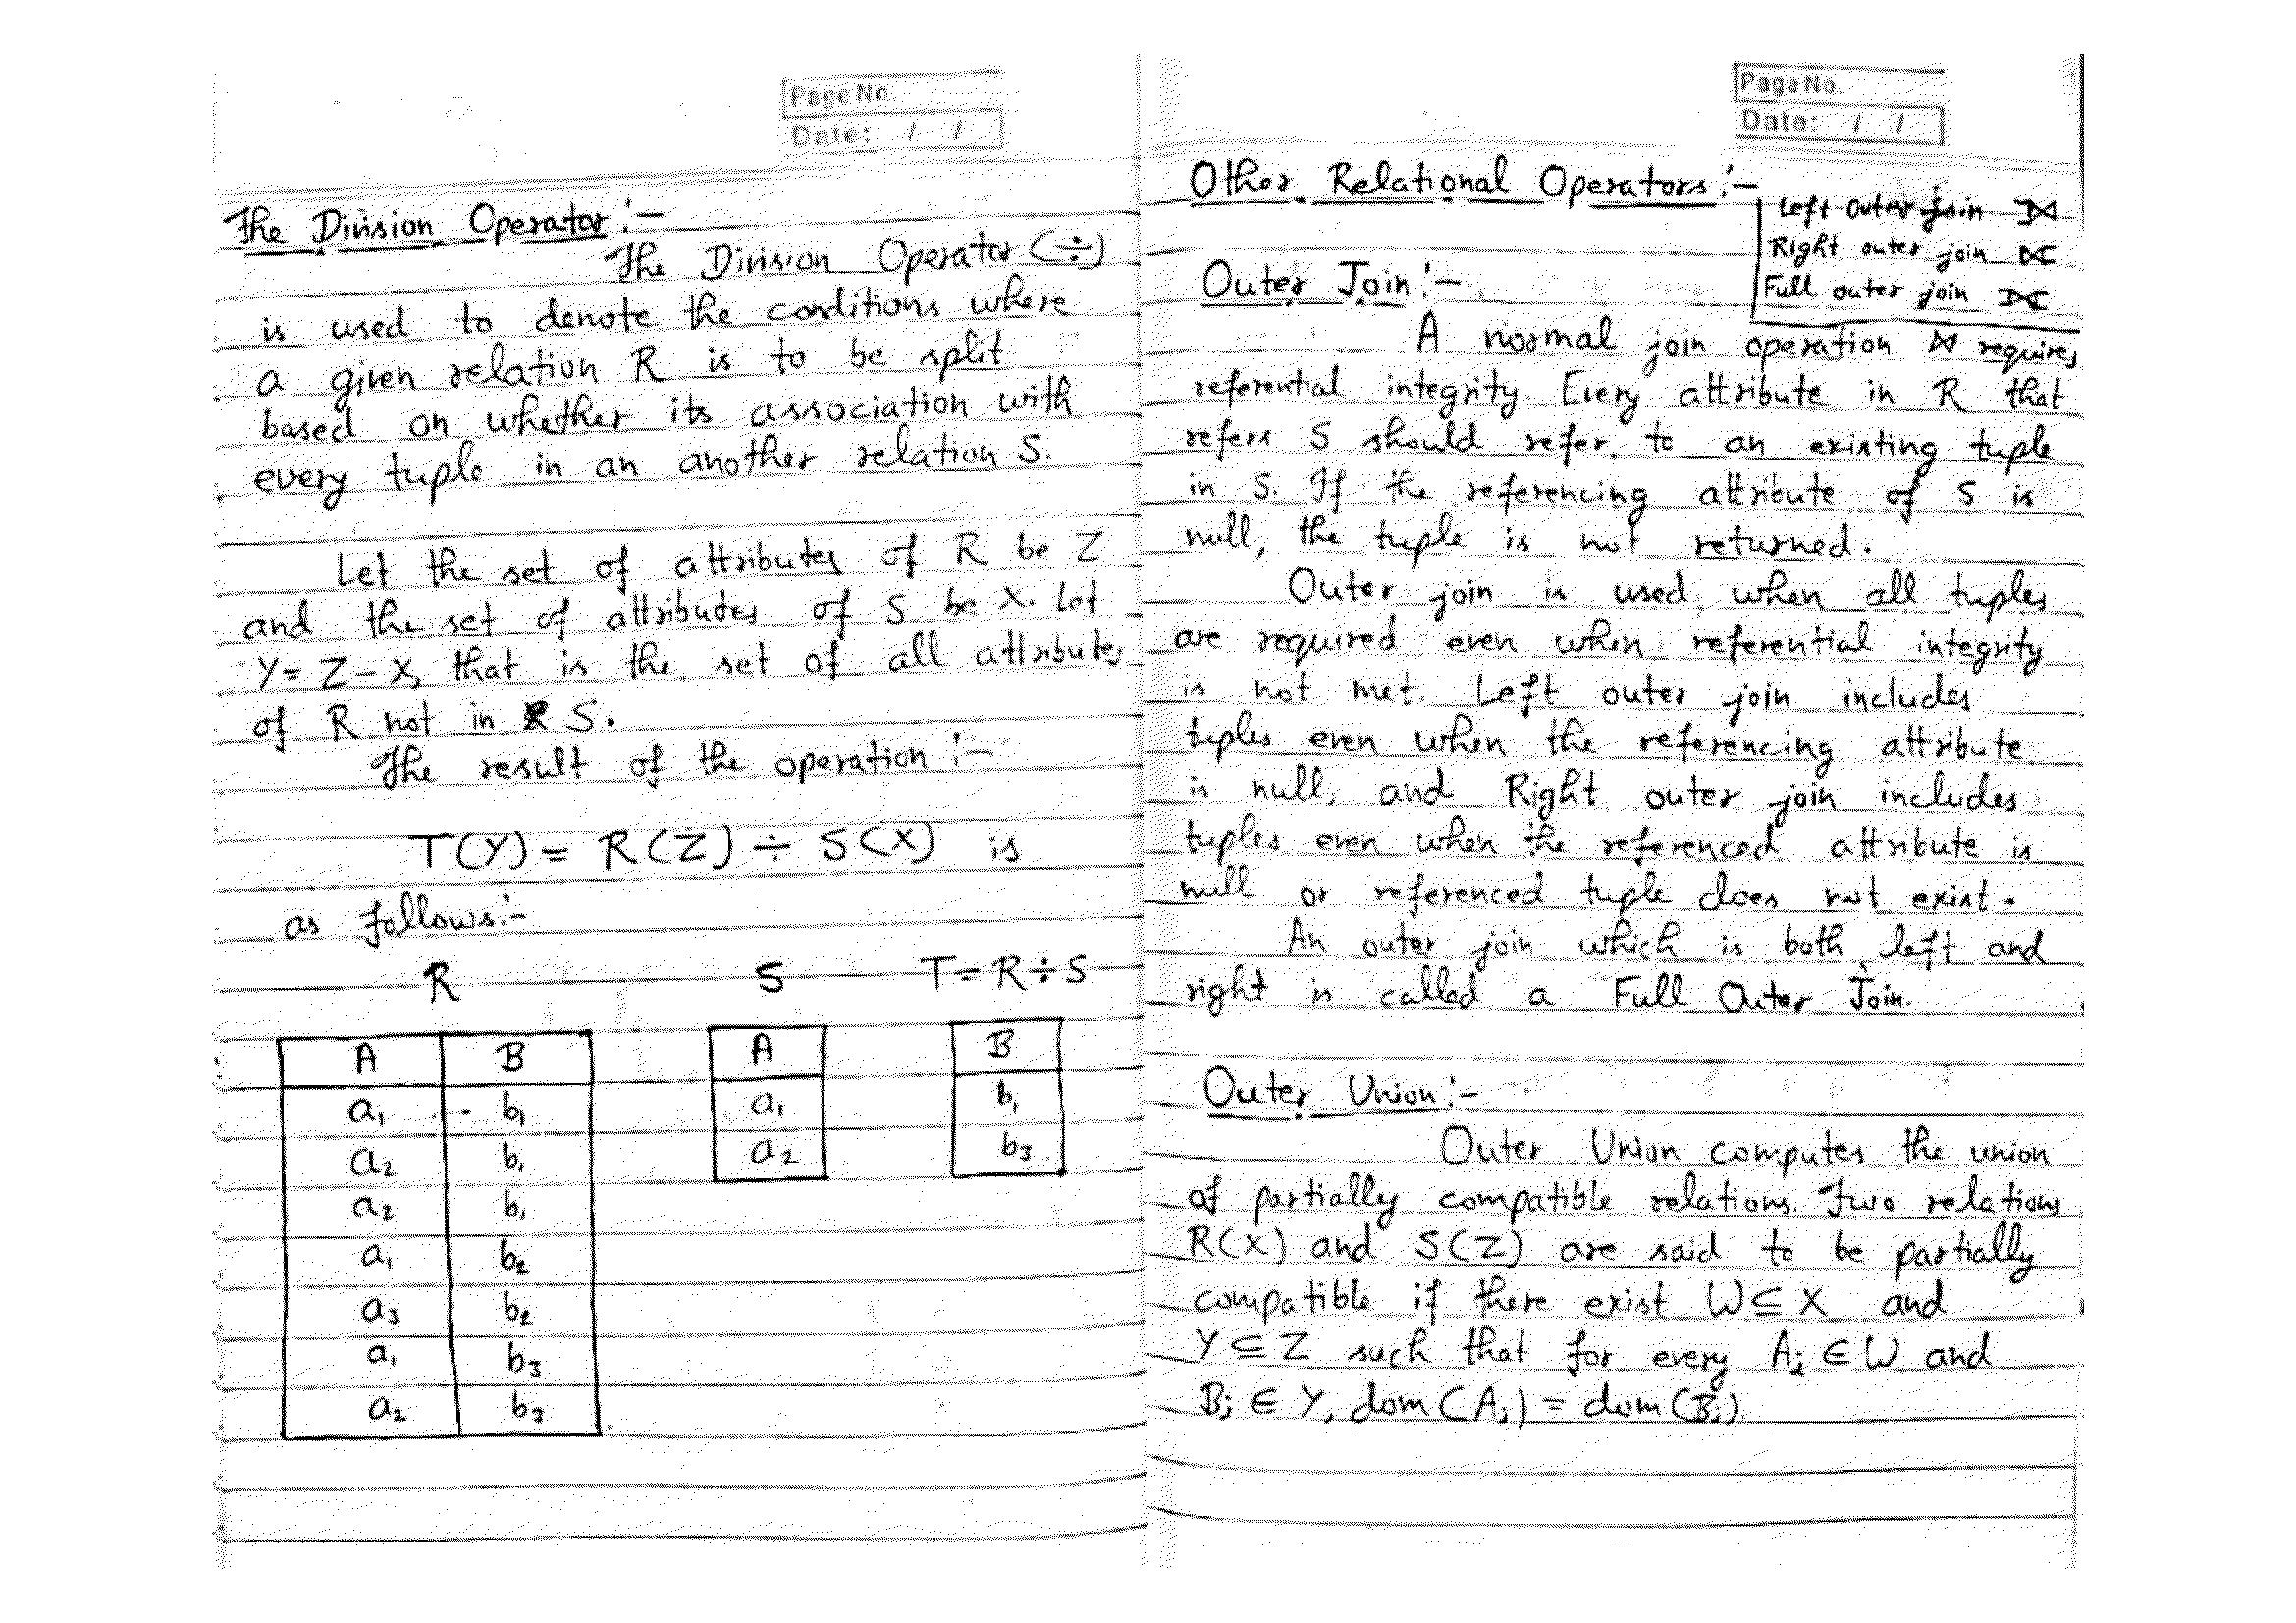 Page No.
Date: / /
The Division Operator :-
The Division Operator (÷)
is used to denote the conditions where
a given relation R is to be split
based on whether its association with
every tuple in an another relation S.
Let the set of attributes of R be Z
and the set of attributes of S be X. Let
Y = Z - X, that is the set of all attributes
of R not in S.
The result of the operation :-
T(Y) = R(Z) ÷ S(X) is
as follows:-
R S T = R ÷ S
A B A B
a₁ b₁ a₁ b₁
a₂ b₁ a₂ b₃
a₂ b₁
a₁ b₂
a₃ b₂
a₁ b₃
a₂ b₃
Page No.
Date: / /
Other Relational Operators :-
Left outer join ⟕
Right outer join ⟖
Full outer join ⟗
Outer Join :-
A normal join operation ⋈ requires
referential integrity. Every attribute in R that
refers S should refer to an existing tuple
in S. If the referencing attribute of S is
null, the tuple is not returned.
Outer join is used when all tuples
are required even when referential integrity
is not met. Left outer join includes
tuples even when the referencing attribute
is null, and Right outer join includes
tuples even when the referenced attribute is
null or referenced tuple does not exist.
An outer join which is both left and
right is called a Full Outer Join.
Outer Union :-
Outer Union computes the union
of partially compatible relations. Two relations
R(X) and S(Z) are said to be partially
compatible if there exist W ⊆ X and
Y ⊆ Z such that for every Aᵢ ∈ W and
Bᵢ ∈ Y, dom(Aᵢ) = dom(Bᵢ)